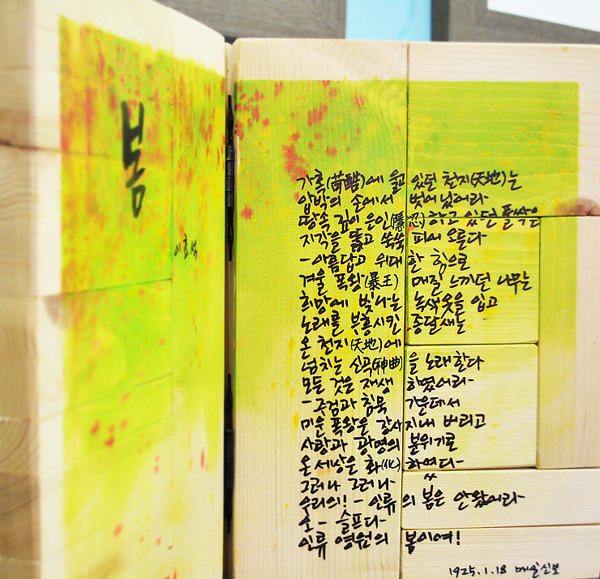 봄
이효석
가혹(苛酷)에 울고 있던 천지(天地)는
압박의 손에서 벗어났어라
땅속 깊이 은인(隱忍)하고 있던 풀싹은
지각을 뚫고 쑥쑥 피어 오른다
- 아름답고 위대한 힘으로
겨울 폭왕(暴王) 매질 느끼던 나무는
희망에 빛나는 녹색옷을 입고
노래를 부흥시킨 종달새는
온 천지(天地)에
넘치는 신곡(神曲)을 노래한다
모든 것은 재생 하였어라-
- 주검과 침묵 가운데서
미운 폭왕을 장사지내 버리고
사랑과 광명의 분위기로
온 세상은 화(化)하였다-
그러나 그러나-
우리의! - 인류의 봄은 안왔어라
오- 슬프다-
인류 영원의 봄이여!
1925.1.18 매일신보